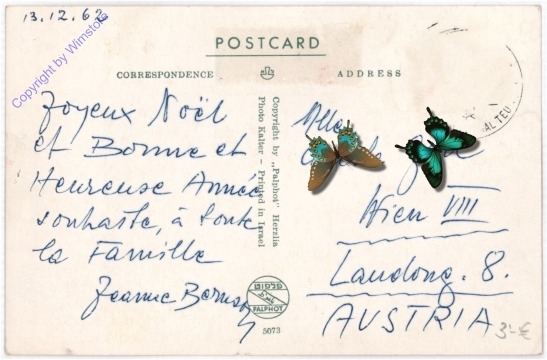 13.12.62
Copyright by Wimstore
POSTCARD
CORRESPONDENCE
ADDRESS
Joyeux Noël
et Bonne et
Heureuse Année
souhaite, à toute
la Famille
Jeanne
Copyright by „Palphot" Herzlia
Photo Kalter - Printed in Israel
פלפוט
PALPHOT
5073
Wien VIII
Laudong. 8.
AUSTRIA
3-€